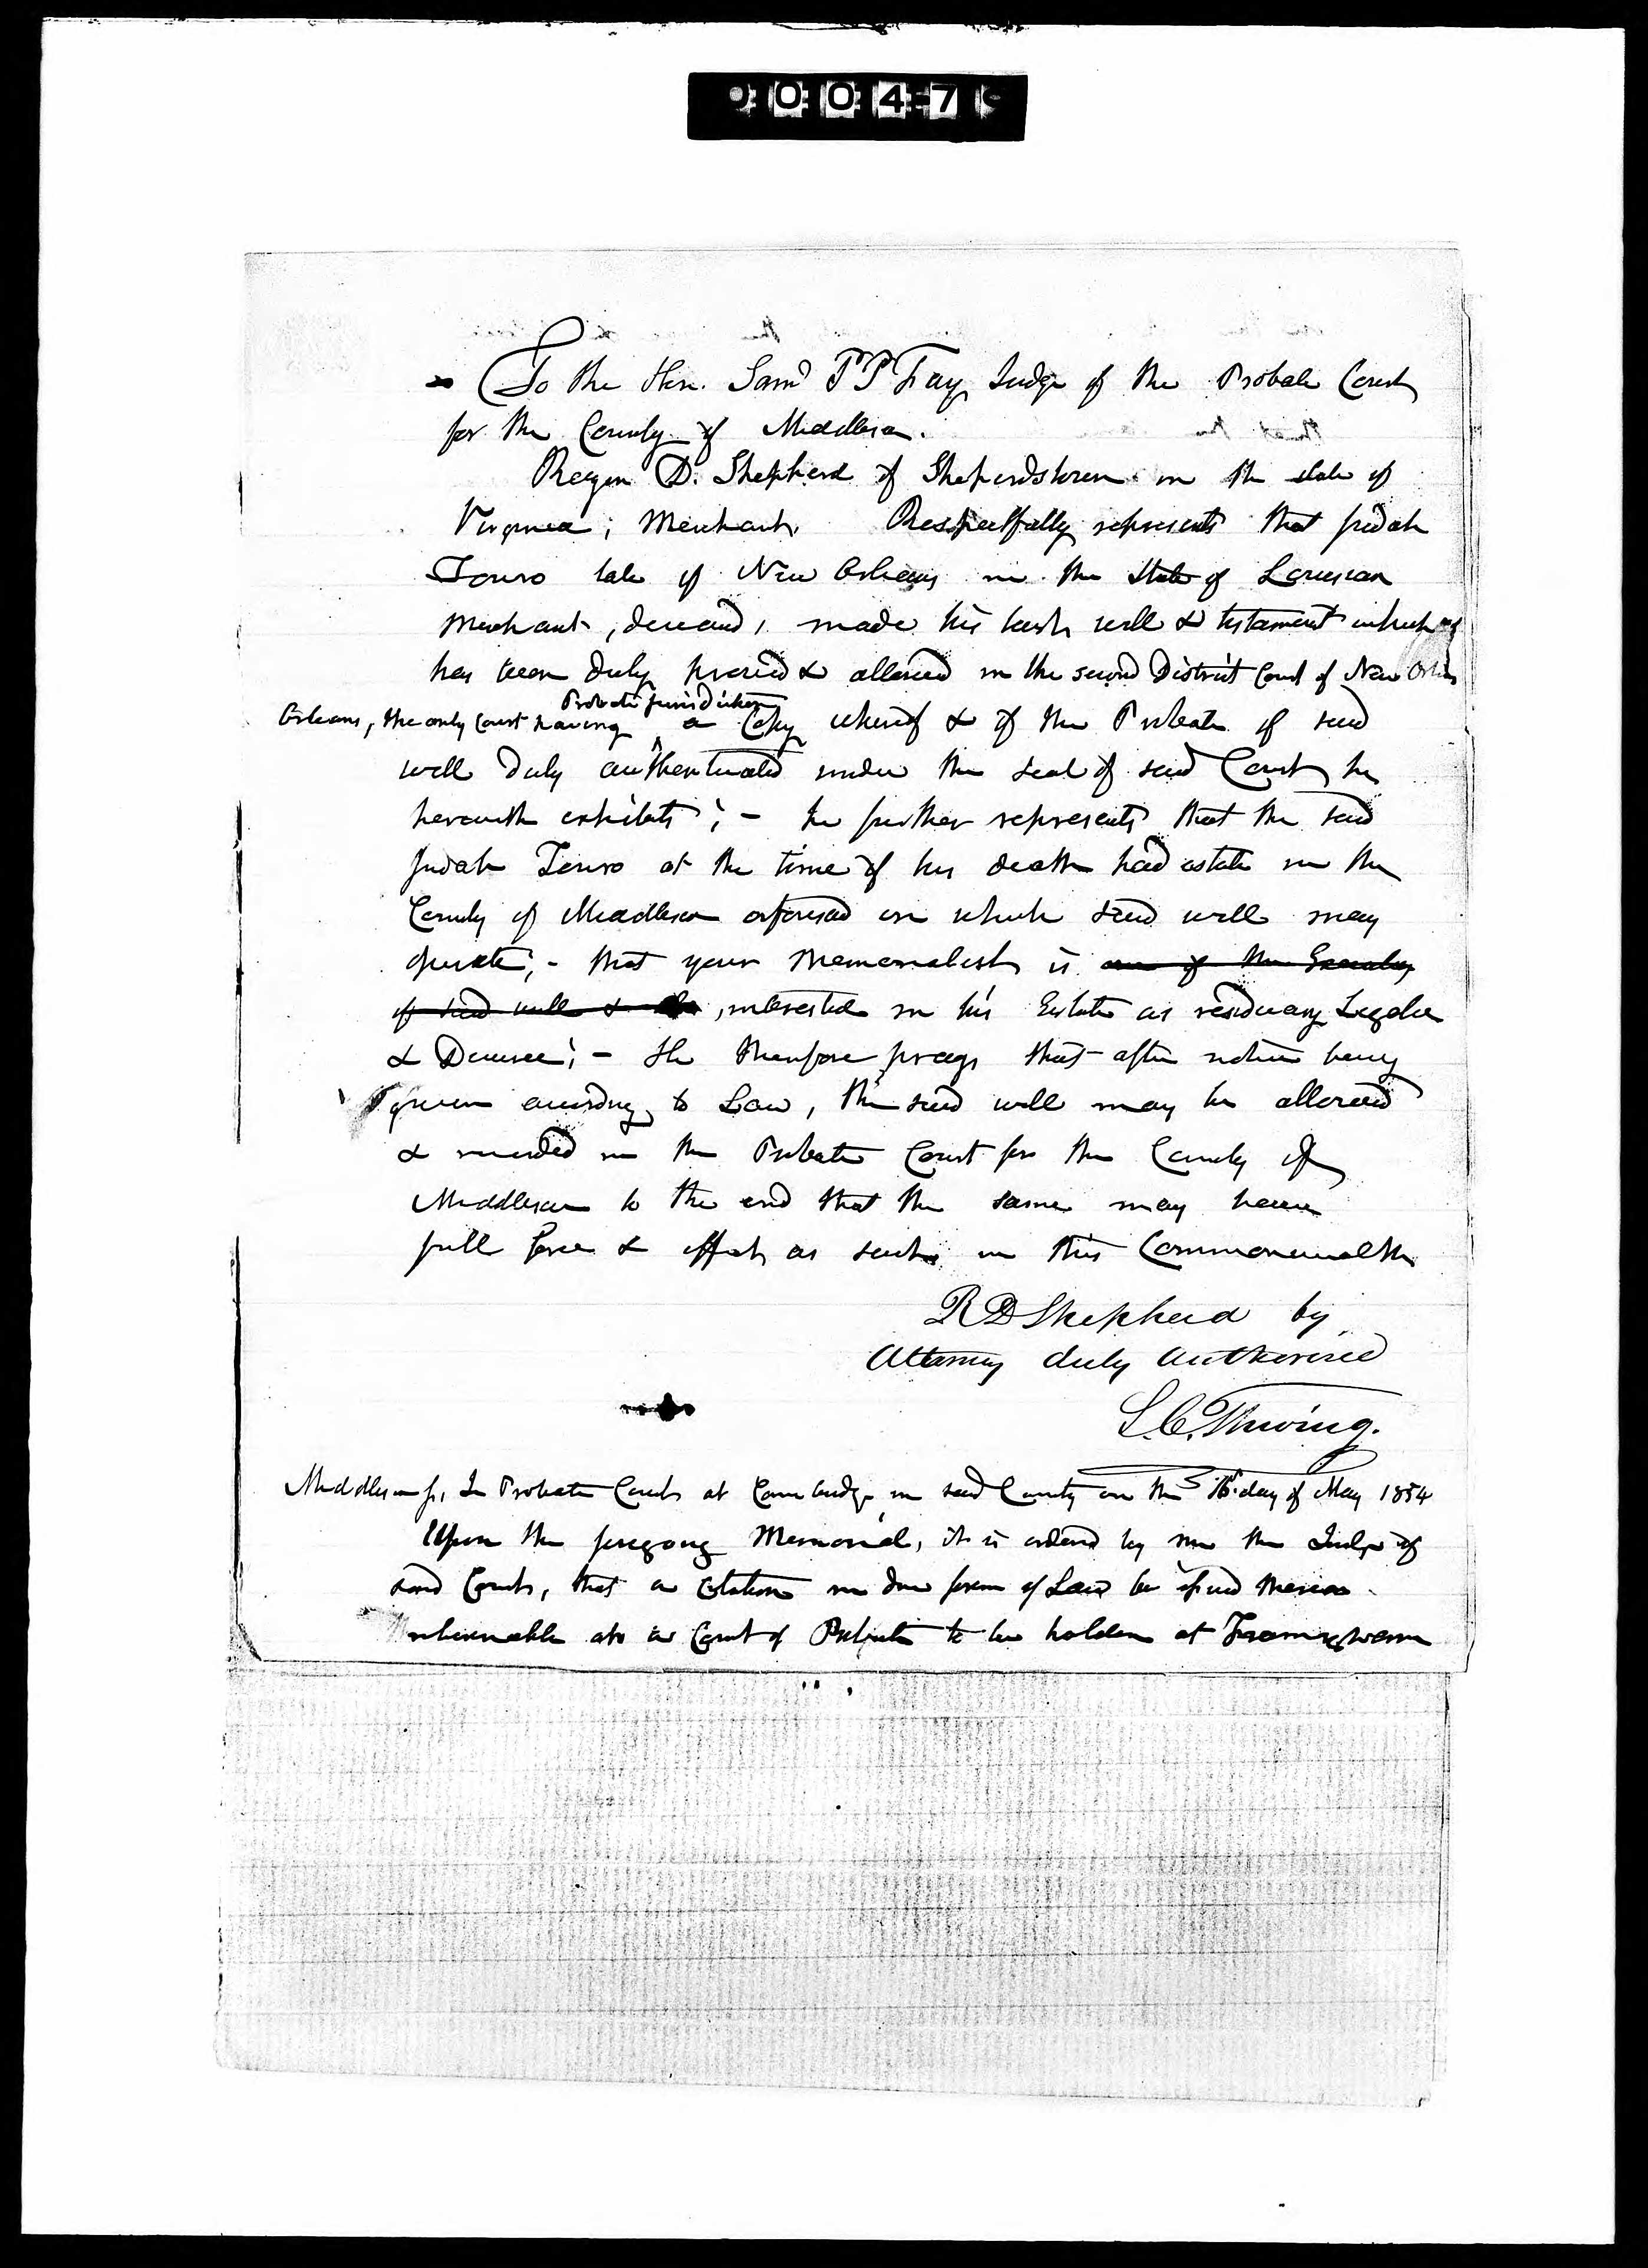 0 0 4 7
To the Hon. Saml P P Fay Judge of the Probate Court
for the County of Middlesex.
Rezin D. Shepherd of Shepherdstown in the state of
Virginia; Merchant, Respectfully represents that Judah
Touro late of New Orleans in the State of Louisian
Merchant, deceased, made his last will & testament which
has been duly proved & allowed in the second District Court of New Orleans
Probate jurisdiction
Orleans, the only Court having ^ a Copy whereof & of the Probate of said
will duly authenticated under the seal of said Court he
herewith exhibits; - he further represents that the said
Judah Touro at the time of his death had estate in the
County of Middlesex aforesaid on which said will may
operate; - that your Memorialist is one of the Executors
of said will & , interested in his Estate as residuary Legatee
& Devisee; - He therefore prays that after notice being
given according to Law, the said will may be allowed
& recorded in the Probate Court for the County of
Middlesex to the end that the same may have
full force & effect as such in this Commonwealth
R D Shepherd by
Attorney duly authorised
S. C. Thwing.
Middlesex ss, In Probate Court at Cambridge in said County on the 16th day of May 1854
Upon the foregoing Memorial, it is ordered by me the Judge of
said Court, that a Citation in due form of Law be issued thereon
returnable at a Court of Probate to be holden at Framingham